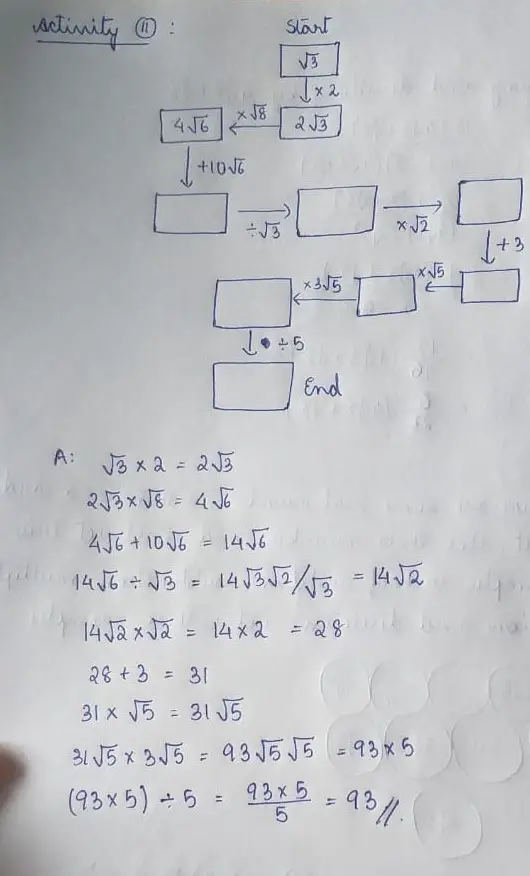 Activity ⑪ :
Start
√3
× 2
4√6 ×√8 2√3
+10√6
÷√3 ×√2
+3
×3√5 ×√5
÷5
End
A: √3 × 2 = 2√3
2√3 × √8 = 4√6
4√6 + 10√6 = 14√6
14√6 ÷ √3 = 14√3√2/√3 = 14√2
14√2 × √2 = 14 × 2 = 28
28 + 3 = 31
31 × √5 = 31√5
31√5 × 3√5 = 93√5√5 = 93 × 5
(93 × 5) ÷ 5 = 93 × 5 / 5 = 93 //.